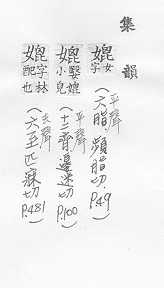 集韻
媲女字（平聲六脂，頻脂切，P.49）
媲嫛媲小兒（平聲十二齊邊迷切P.100）
媲字林配也（去聲六至匹寐切P.481）